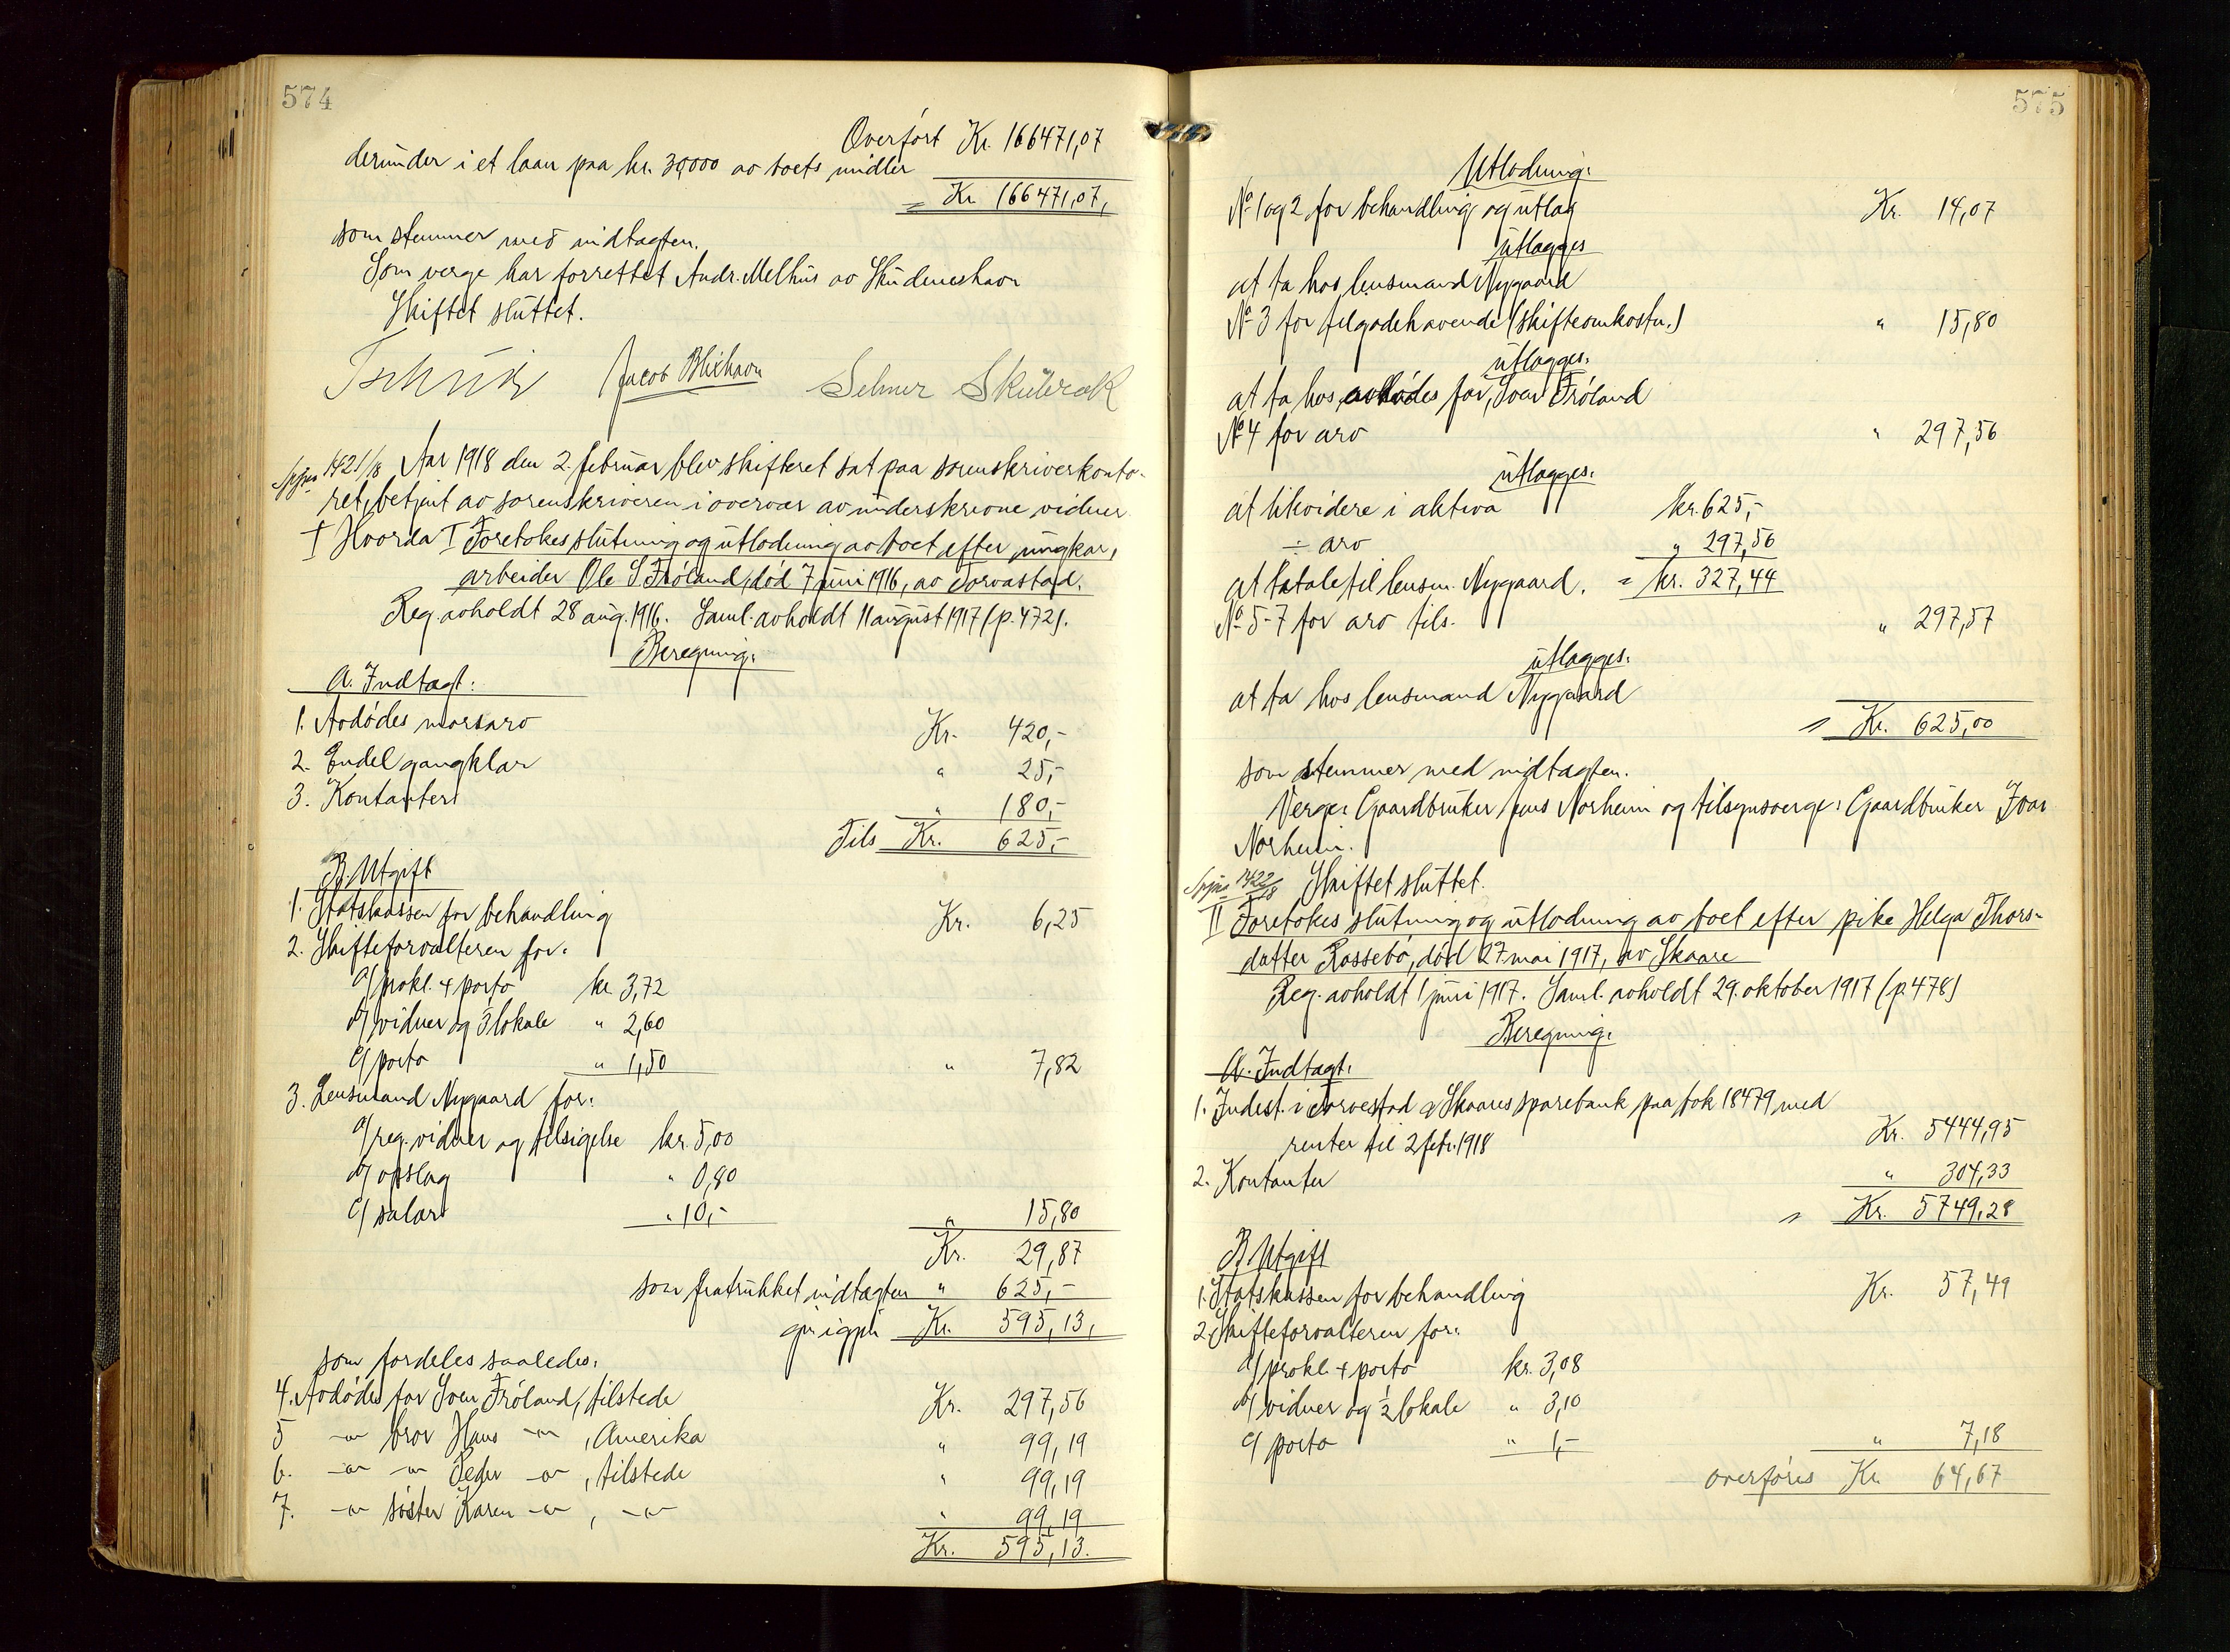 574
Overført Kr. 166471,07
derunder i et laan paa kr. 30,000 av boets midler
= Kr. 166471,07,
som stemmer med indtagten.
Som verge har forrettet Andr. Melhus av Skudeneshavn
Skiftet sluttet.
Jacob Blixhavn Selmer
1421/18 Aar 1918 den 2. februar blev skifteret sat paa sorenskriverkonto-
ret, betjent av sorenskriveren i overvær av underskrevne vidner
Hvorda I Foretokes slutning og utlodning av boet efter ungkar,
arbeider Ole S. Frøland, død 7 juni 1916, av Torvastad.
Reg. avholdt 28 aug. 1916. Saml. avholdt 11 august 1917 (p. 472).
Beregning:
A. Indtagt:
1. Avdødes morsarv Kr. 420,-
2. Endel gangklær " 25,-
3. Kontanter " 180,-
Tils Kr. 625,-
B. Utgift
1. Statskassen for behandling Kr. 6,25
2. Skifteforvalteren for:
a/ prokl. + porto kr. 3,72
b/ vidner og 3 lokale " 2,60
c/ porto " 1,50 " 7,82
3. Lensmand Nygaard for:
a/ reg. vidner og tilsigelse kr. 5,00
b/ opslag " 0,80
c/ salær " 10,- " 15,80
Kr. 29,87
som fratrukket indtagten " 625,-
gir igjen Kr. 595,13,
som fordeles saaledes:
4. Avdødes far Sven Frøland, tilstede Kr. 297,56
5 -"- bror Hans -"- , Amerika " 99,19
6. -"- -"- Peder -"- , tilstede " 99,19
7. -"- søster Karen -"- , -"- " 99,19
Kr. 595,13.
575
Utlodning:
No 1 og 2 for behandling og utlæg Kr. 14,07
utlægges
at ta hos lensmand Nygaard
No 3 for tilgodehavende (skifteomkostn.) " 15,80
utlægges:
at ta hos avdødes far, Sven Frøland
No 4 for arv " 297,56
utlægges:
at likvidere i aktiva kr. 625,-
÷ arv " 297,56
at betale til lensm. Nygaard. = kr. 327,44
No 5-7 for arv tils. " 297,57
utlægges:
at ta hos lensmand Nygaard
= Kr. 625,00
som stemmer med indtagten.
Verge: Gaardbruker Jens Norheim og tilsynsverge: Gaardbruker Ivar
Norheim.
1422/18 Skiftet sluttet.
II Foretokes slutning og utlodning av boet efter pike Helga Thors-
datter Rossebø, død 27 mai 1917, av Skaare
Reg. avholdt 1 juni 1917. Saml. avholdt 29. oktober 1917 (p. 478)
Beregning:
A. Indtagt:
1. Indest. i Torvestad & Skaares sparebank paa bok 18479 med
renter til 2 febr. 1918 Kr. 5444,95
2. Kontanter " 304,33
= Kr. 5749,28
B. Utgift
1. Statskassen for behandling Kr. 57,49
2. Skifteforvalteren for:
a/ prokl. + porto kr. 3,08
b/ vidner og ½ lokale " 3,10
c/ porto " 1,- " 7,18
overføres Kr. 64,67